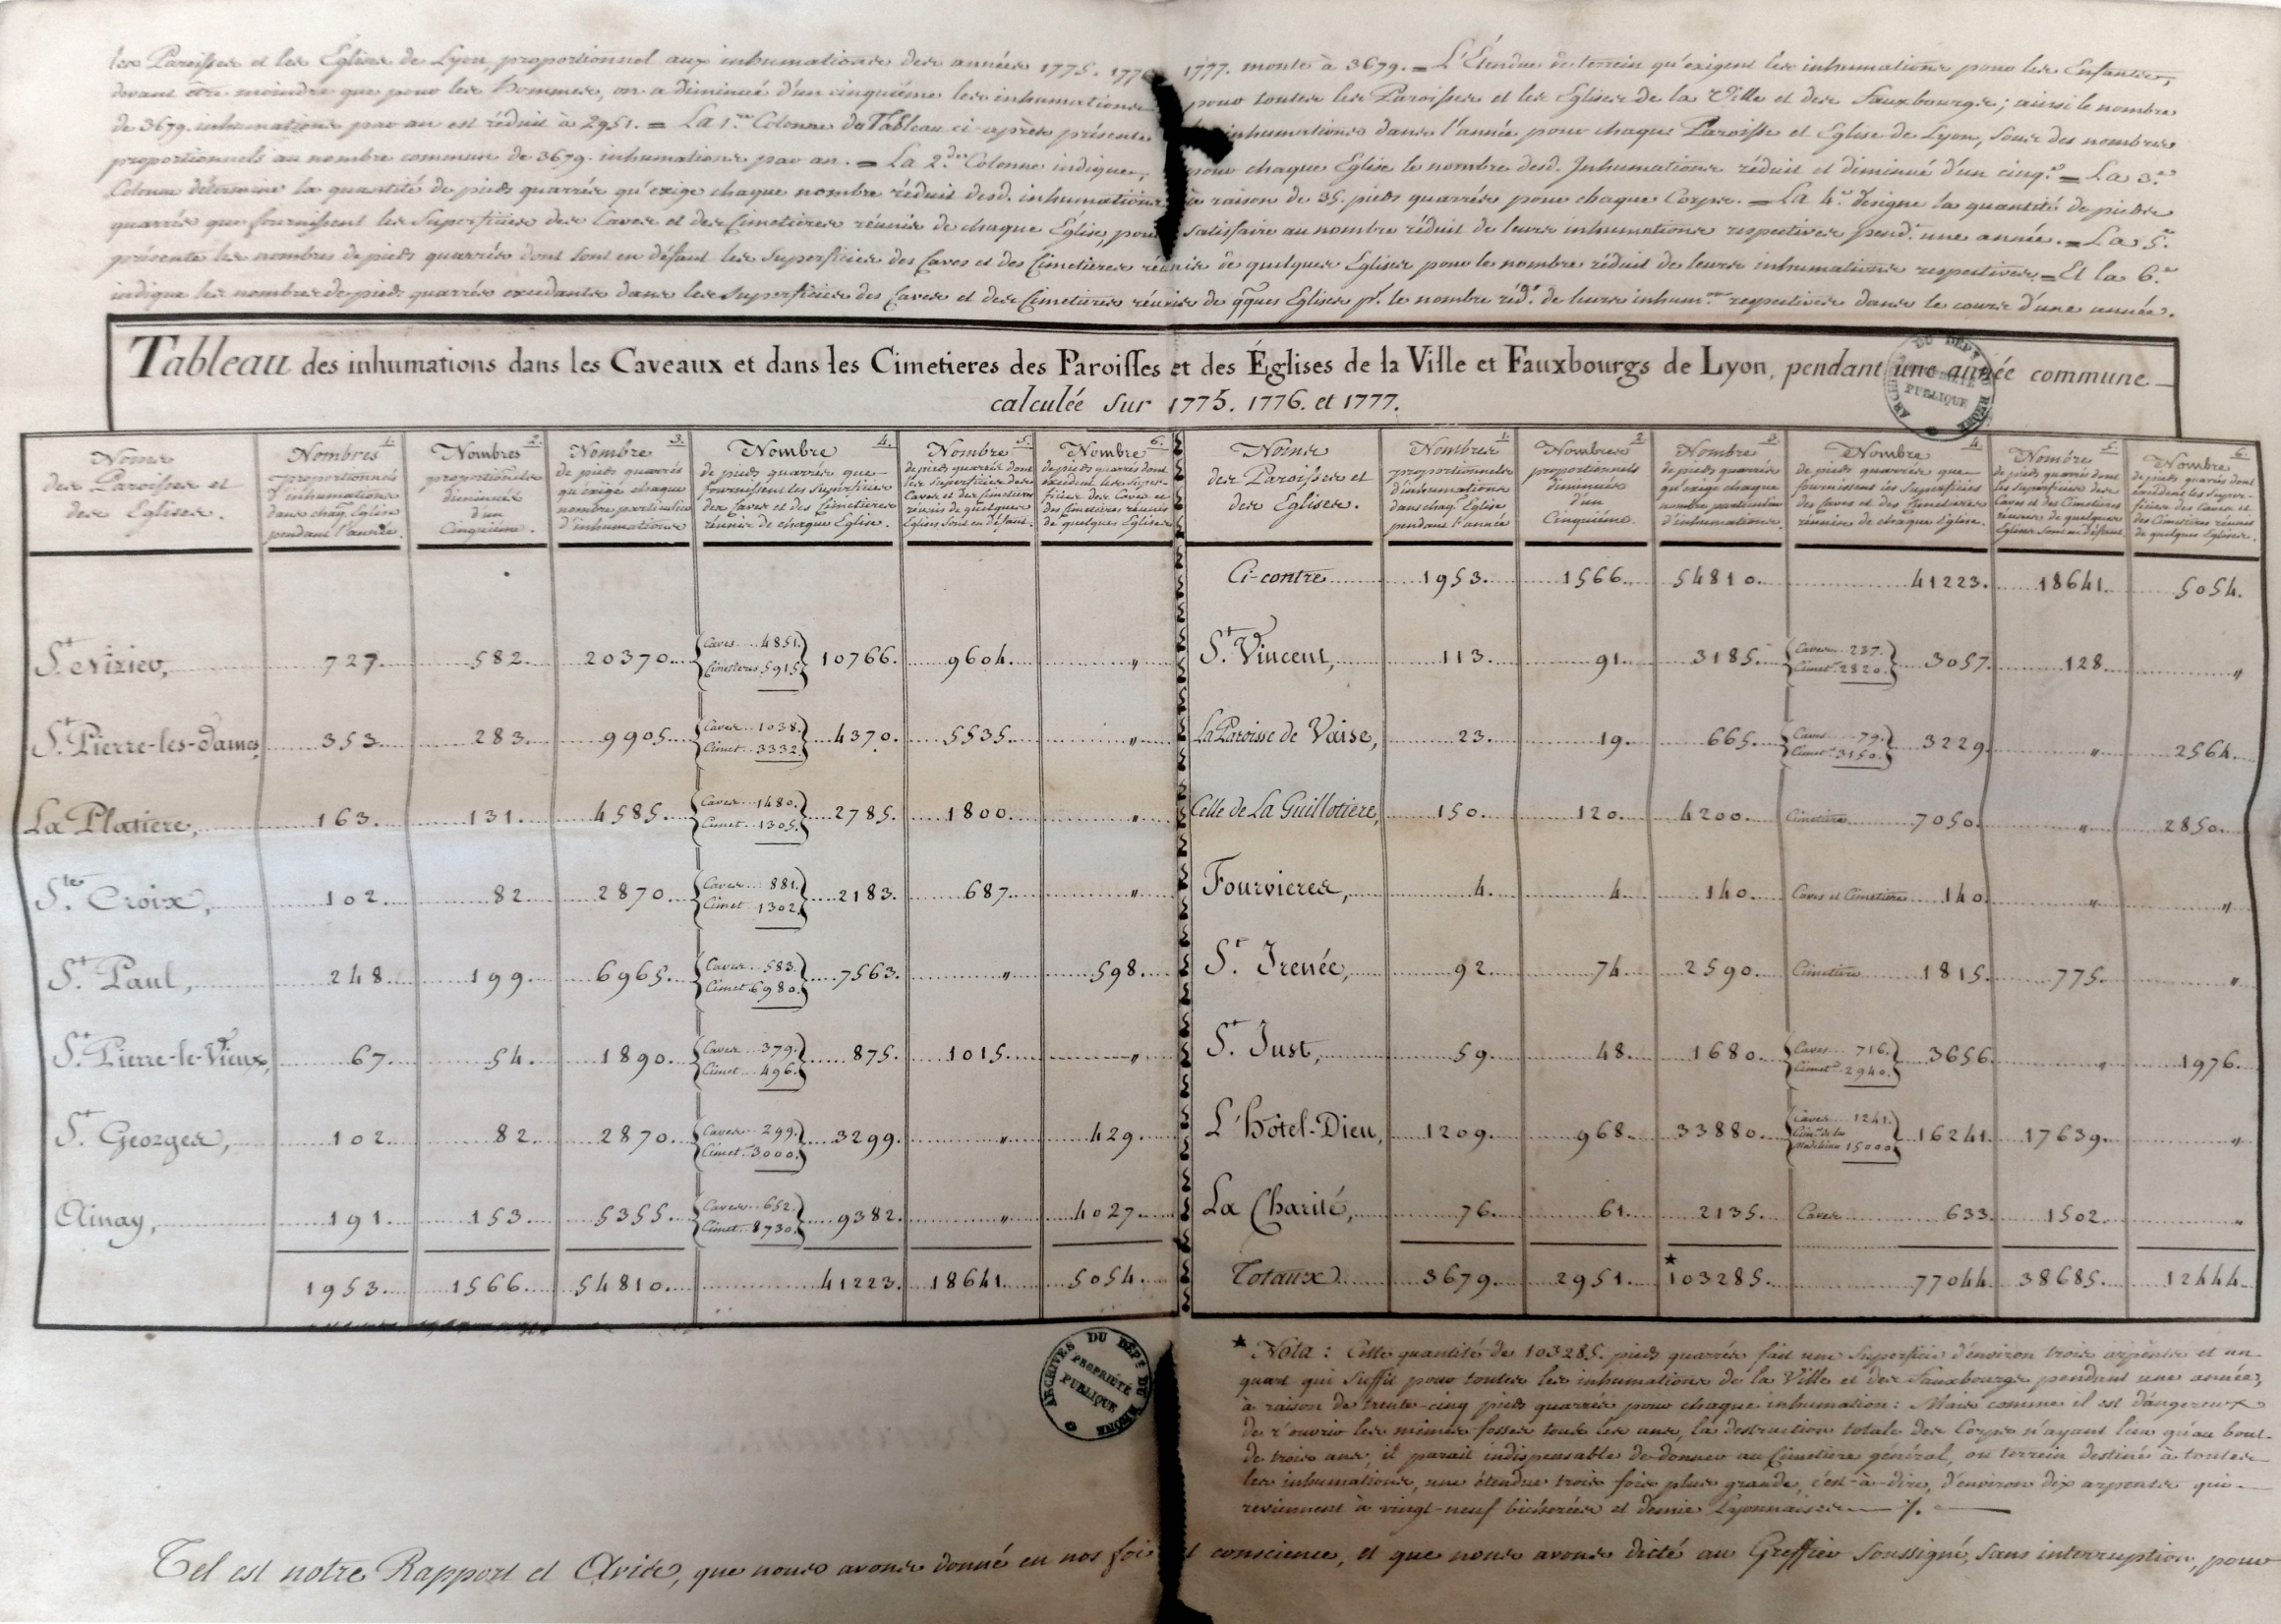 les Paroisses et les Églises de Lyon, proportionnel aux inhumations des années 1775. 1776 1777. monte à 3679. = L'Étendue de terrein qu'exigent les inhumations pour les Enfants,
devant être moindre que pour les Hommes, on a diminué d'un cinquiéme les inhumations pour toutes les Paroisses et les Eglises de la Ville et des Fauxbourgs; ainsi le nombre
de 3679. inhumations par an est réduit à 2951. = La 1.re Colonne du Tableau ci-après présente les inhumations dans l'année pour chaque Paroisse et Eglise de Lyon, sous des nombres
proportionnels au nombre commun de 3679. inhumations par an. = La 2.de Colonne indique, pour chaque Eglise le nombre desd. Inhumations réduit et diminué d'un cinq.e = La 3.e
Colonne détermine la quantité de pieds quarrés qu'exige chaque nombre réduit desd. inhumations à raison de 35. pieds quarrés pour chaque Corps. = La 4.e désigne la quantité de pieds
quarrés que fournissent les Superficies des Caves et des Cimetieres réunis de chaque Église, pour Satisfaire au nombre réduit de leurs inhumations respectives pend.t une année. = La 5.e
présente les nombres de pieds quarrés dont sont en défaut les Superficies des Caves et des Cimetieres réunis de quelques Eglises pour le nombre réduit de leurs inhumations respectives = Et la 6.e
indique les nombres de pieds quarrés excedants dans les Superficies des Caves et des Cimetieres réunis de qques Eglises p.r le nombre réd.t de leurs inhum.ons respectives dans le cours d'une année.
Tableau des inhumations dans les Caveaux et dans les Cimetieres des Paroisses et des Églises de la Ville et Fauxbourgs de Lyon, pendant une année commune
calculée sur 1775. 1776. et 1777.
Noms des Paroisses et des Eglises.
1. Nombres proportionnels d'inhumations dans chaq. Eglise pendant l'année.
2. Nombres proportionels diminués d'un Cinquiéme.
3. Nombre de pieds quarrés qu'exige chaque nombre particulier d'inhumations
4. Nombre de pieds quarrés que fournissent les Superficies des Caves et des Cimetieres réunis de chaque Eglise.
5. Nombre de pieds quarrés dont les Superficies des Caves et des Cimetieres réunis de quelques Eglises sont en défaut.
6. Nombre de pieds quarrés dont excedent les Superficies des Caves et des Cimetieres réunis de quelques Eglises
St. Nizier, 727. 582. 20370. Caves 4851. Cimetieres 5915. 10766. 9604. "
St. Pierre-les-Dames, 353. 283. 9905. Caves 1038. Cimet. 3332. 4370. 5535. "
La Platiere, 163. 131. 4585. Caves 1480. Cimet. 1305. 2785. 1800. "
Ste. Croix, 102. 82. 2870. Caves 881. Cimet. 1302. 2183. 687. "
St. Paul, 248. 199. 6965. Caves 583. Cimet. 6980. 7563. " 598.
St. Pierre-le-Vieux, 67. 54. 1890. Caves 379. Cimet. 496. 875. 1015. "
St. Georges, 102. 82. 2870. Caves 299. Cimet. 3000. 3299. " 429.
Ainay, 191. 153. 5355. Caves 652. Cimet. 8730. 9382. " 4027.
1953. 1566. 54810. 41223. 18641. 5054.
Noms des Paroisses et des Eglises.
1. Nombres proportionnels d'inhumations dans chaq. Eglise pendant l'année
2. Nombres proportionnels diminués d'un Cinquiéme.
3. Nombre de pieds quarrés qu'exige chaque nombre particulier d'inhumations.
4. Nombre de pieds quarrés que fournissent les Superficies des Caves et des Cimetieres réunis de chaque Eglise.
5. Nombre de pieds quarrés dont les Superficies des Caves et des Cimetieres réunis de quelques Eglises sont en défaut
6. Nombre de pieds quarrés dont excedent les Superficies des Caves et des Cimetieres réunis de quelques Eglises.
Ci-contre 1953. 1566. 54810. 41223. 18641. 5054.
St. Vincent, 113. 91. 3185. Caves 237. Cimet. 2820. 3057. 128. "
La Paroisse de Vaise, 23. 19. 665. Caves 79. Cimet. 3150. 3229. " 2564.
Celle de La Guillotiere, 150. 120. 4200. Cimetiere 7050. " 2850.
Fourvieres, 4. 4. 140. Caves et Cimetiere 140. " "
St. Irenée, 92. 74. 2590. Cimetiere 1815. 775. "
St. Just, 59. 48. 1680. Caves 716. Cimet. 2940. 3656. " 1976.
L'Hôtel-Dieu, 1209. 968. 33880. Caves 1241. Cim.re de la Madelaine 15000. 16241. 17639. "
La Charité, 76. 61. 2135. Caves 633. 1502. "
Totaux 3679. 2951. * 103285. 77044. 38685. 12444.
* Nota: Cette quantité de 103285. pieds quarrés fait une Superficie d'environ trois arpents et un
quart qui suffit pour toutes les inhumations de la Ville et des Fauxbourgs pendant une année,
à raison de trente-cinq pieds quarrés pour chaque inhumation: Mais comme il est dangereux
de r'ouvrir les mêmes fosses tous les ans, la destruction totale des Corps n'ayant lieu qu'au bout
de trois ans, il parait indispensable de donner au Cimetiere général, ou terrein destiné à toutes
les inhumations, une étendue trois fois plus grande, c'est-à-dire, d'environ dix arpents qui
reviennent à vingt-neuf bicherées et demie Lyonnaises
Tel est notre Rapport et Avis, que nous avons donné en nos foi et conscience, et que nous avons dicté au Greffier soussigné, sans interruption, pour
ARCHIVES DU DÉPT DU RHONE
PROPRIÉTÉ PUBLIQUE
ARCHIVES DU DÉPT DU RHONE
PROPRIÉTÉ PUBLIQUE